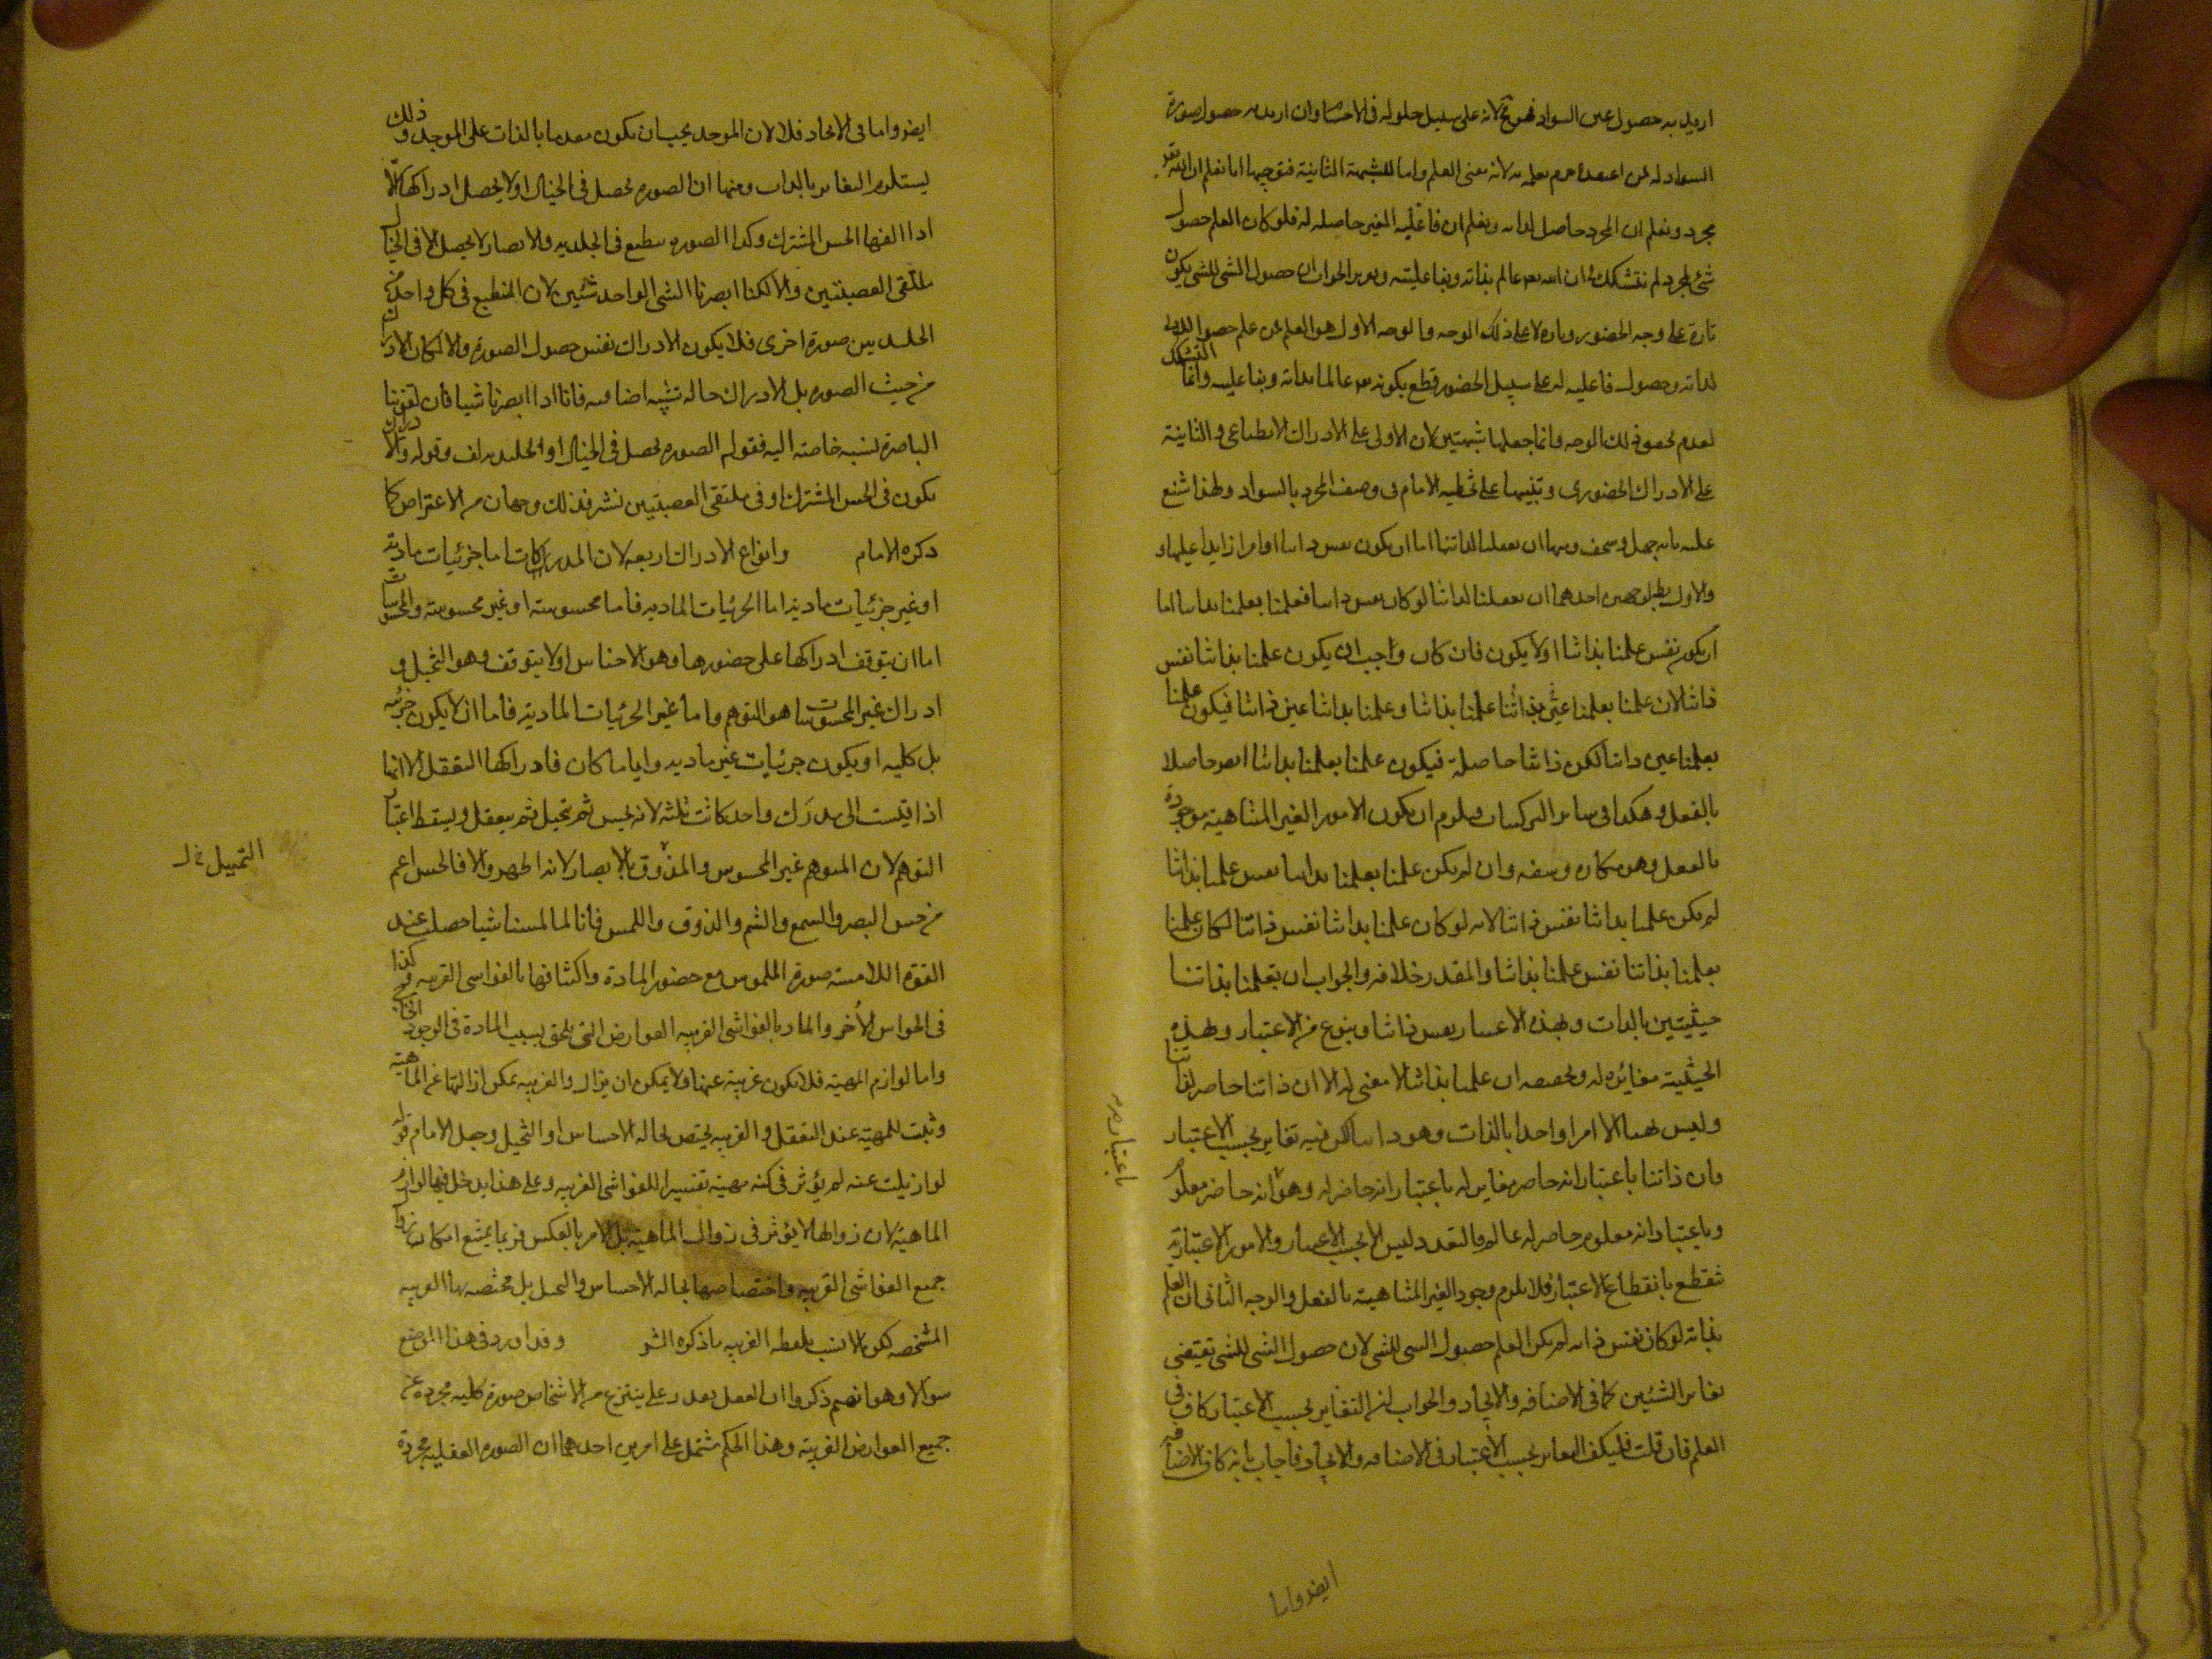 اريد به حصول عين السواد فهو مح لانه على سبيل حلوله فى الاجسام وان اريد به حصول صورة
السواد له لمن اعتقد انه يعلمه لانه معنى العلم واما للشبهة الثانية فتوجيهها انا نعلم ان الله تعـ
مجرد ونعلم ان المجرد حاصل لذاته ونعلم ان فاعليه الغير حاصله له فلو كان العلم حصول
شئ لمجرد لم نتشكك فى ان الله تعـ عالم بذاته وبفاعليته وتقرير الجواب ان حصول الشى للشى يكون
تارة على وجه الحضور وتارة لا على ذلك الوجه والوجه الاول هو العلم فمن علم حصوله
لذاته وحصول فاعليه له على سبيل الحضور قطع بكونه تعـ عالما بذاته وبفاعليه وانما التشكك
لعدم تحقق ذلك الوجه وانما جعلها شبهتين لان الاولى على الادراك الانطباعى والثانية
على الادراك الحضورى وتنبيها على تخطيه الامام فى وصف المجرد بالسواد ولهذا شنع
عليه بانه جهل وسخف ومنها ان تعقلنا لذاتنا اما ان يكون نفس ذاتنا او امرا زايدا عليها و
والاول بط لوجهين احدهما ان تعقلنا لذاتنا لو كان نفس ذاتنا فعلمنا بعلمنا بذاتنا اما
ان يكون نفس علمنا بذاتنا او لا يكون فان كان واجب ان يكون علمنا بذاتنا نفس
ذاتنا لان علمنا بعلمنا عين بذاتنا علمنا بذاتنا وعلمنا بذاتنا عين ذاتنا فيكون علمنا
بعلمنا عين ذاتنا لكن ذاتنا حاصلة فيكون علمنا بعلمنا بذاتنا ايضر حاصلا
بالفعل وهكذا فى ساير التركيبات ويلزم ان يكون الامور الغير المتناهية موجودة
بالفعل وهو مكابره وسفه وان لم يكن علمنا بعلمنا بذاتنا نفس علمنا بذاتنا
لم يكن علمنا بذاتنا نفس ذاتنا لانه لو كان علمنا بذاتنا نفس ذاتنا لكان علمنا
بعلمنا بذاتنا نفس علمنا بذاتنا والمقدر خلافه والجواب ان تعلمنا بذاتنا
حيثيتين بالذات وبهذه الاعتبار نفس ذاتنا وبنوع من الاعتبار وبهذه
الحيثية مغائره له وتحقيقه ان علمنا بذاتنا لا معنى له الا ان ذاتنا حاضر لذاتنا
وليس ههنا الا امرا واحدا بالذات وهو ذاتنا لكن فيه تغاير بحسب الاعتبار
فان ذاتنا باعتبار انه حاضر مغاير له باعتبار انه حاضر له وهو انه حاضر معلوم
وباعتبار انه معلوم حاضر له عالم والتعدد ليس الا بحسب الاعتبار والامور الاعتبارية
تنقطع بانقطاع الاعتبار فلا يلزم وجود الغير المتناهية بالفعل والوجه الثانى ان العلم
بذاته لو كان نفس ذاته لم يكن العلم حصول الشى للشى لان حصول الشى للشى تقتضى
تغاير الشيئين كما فى الاضافه والايجاد والجواب انه التغاير بحسب الاعتبار كاف فى
العلم فان قلت فليكف التغاير بحسب الاعتبار فى الاضافه والايجاد فاجاب بانه كاف الاضافه
باعتبار
ايضر واما
ايضر واما فى الايجاد فلا لان الموجد يجب ان يكون مقدما بالذات على الموجد وذلك
يستلزم التغاير بالذات ومنها ان الصوره تحصل فى الخيال او لا يحصل ادراكها الا
اذا الفتها الحس المشترك وكذا الصوره تنطبع فى الجليديه والابصار لا يحصل الا فى الخيال
ملتقى العصبتين والا لكنا ابصرنا الشى الواحد شيئين لان المنطبع فى كل واحد من
الجليديتين صورة اخرى فلا يكون الادراك نفس حصول الصورة والا لكان الادراك
من حيث الصوره بل الادراك حاله تشبه اضافيه فانا اذا ابصرنا شيا فان لقوتنا
الباصرة نسبه خاصته اليه فقوله الصوره تحصل فى الخيال او الجليديه لف وقوله والادراك
يكون فى الحس المشترك او فى ملتقى العصبتين نشر فذلك وجهان من الاعتراض كما
ذكره الامام وانواع الادراك اربعه لان المدركات اما جزئيات مادية
او غير جزئيات مادية اما الجزئيات الماديه فاما محسوسته او غير محسوسته والمحسوسات
اما ان يتوقف ادراكها على حضورها وهو الاحساس او لا يتوقف وهو التخيل و
ادراك غير المحسوسات هو التوهم واما غير الجزئيات المادية فاما ان لا يكون جزئيه
بل كليه او يكون جزئيات غير ماديه واياما كان فادراكها التعقل الا انها
اذا قيست الى مدرك واحد كانت ثلثه لانه يحس ثم تخيل ثم يعقل ويسقط اعتبار
التوهم لان المتوهم غير المحسوس والمذوق بالابصار لانه اظهر والا فالحس اعم
من حس البصر والسمع والشم والذوق واللمس فانا لما لمسنا شيا حصلت عند
القوة اللامسته صورة الملموس مع حضور المادة واكتنافها بالغواشى الغريبه وكذا
فى الحواس الاخر والمراد بالغواشى الغريبه العوارض التى تلحق بسبب المادة فى الوجود الخارجى
واما لوازم المهية فلا يكون غريبة عنها ولا يمكن ان يزال والغريبه يمكن ازالتها عن الماهية
وثبت للمهية عند التعقل والغريبه يختص بحاله الاحساس او التخيل وجعل الامام قوله
لو ازيلت عنه لم يؤثر فى كنه مهيته تفسيرا للغواشى الغريبه وعلى هذا يدخل فيها لوازم
الماهية لان زوالها لا يؤثر فى زوال الماهية بل الامر بالعكس فربما يمتنع امكان زوال
جميع الغواشى الغريبه واختصاصها بحاله الاحساس والتخيل بل مختصه بها الغريبه
المشخصه لكن الانسب بلفظه الغريبه ما ذكره الشر وقد اورد فى هذا الموضع
سؤالا وهو انهم ذكروا ان العقل يقدر على ينتزع من الاشخاص صورة كليه مجردة عن
جميع العوارض الغريبة وهذا الحكم مشتمل على امرين احدهما ان الصوره العقليه مجردة